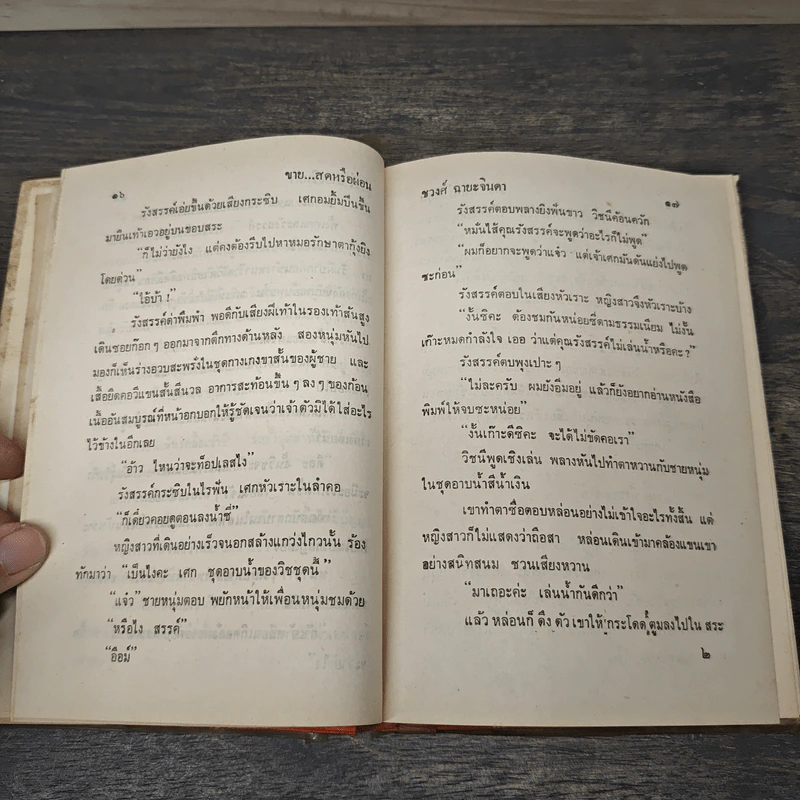 ๑๖
ขาย...สดหรือผ่อน
รังสรรค์เอ่ยขึ้นด้วยเสียงกระซิบ เศกอมยิ้มปีนขึ้น
มายืนเท้าเอวอยู่บนขอบสระ
“ก็ไม่ว่ายังไง แต่คงต้องรีบไปหาหมอรักษาตากุ้งยิง
โดยด่วน”
“ไอ้บ้า !”
รังสรรค์ด่าพึมพำ พอดีกับเสียงฝีเท้าในรองเท้าส้นสูง
เดินซอยก๊อก ๆ ออกมาจากตึกทางด้านหลัง สองหนุ่มหันไป
มองก็เห็นร่างอวบสะพรั่งในชุดกางเกงขาสั้นของผู้ชาย และ
เสื้อยืดคอวีแขนสั้นสีนวล อาการสะท้อนขึ้น ๆ ลง ๆ ของก้อน
เนื้ออันสมบูรณ์ที่หน้าอกบอกให้รู้ชัดเจนว่าเจ้าตัวมิได้ใส่อะไร
ไว้ข้างในอีกเลย
“อ้าว ไหนว่าจะท็อปเลสไง”
รังสรรค์กระซิบในไรฟัน เศกหัวเราะในลำคอ
“ก็เดี๋ยวคอยดูตอนลงน้ำซี่”
หญิงสาวที่เดินอย่างเร็วจนอกสล้างแกว่งไกวนั้น ร้อง
ทักมาว่า “เป็นไงคะ เศก ชุดอาบน้ำของวิชชุดนี้”
“แจ๋ว” ชายหนุ่มตอบ พยักหน้าให้เพื่อนหนุ่มชมด้วย
“หรือไง สรรค์”
“อือม์”
ชวงศ์ ฉายะจินดา
๑๗
รังสรรค์ตอบพลางยิงฟันขาว วิชนีค้อนควัก
“หมั่นไส้คุณรังสรรค์จะพูดว่าอะไรก็ไม่พูด”
“ผมก็อยากจะพูดว่าแจ๋ว แต่เจ้าเศกมันดันแย่งไปพูด
ซะก่อน”
รังสรรค์ตอบในเสียงหัวเราะ หญิงสาวจึงหัวเราะบ้าง
“งั้นซิคะ ต้องชมกันหน่อยซี่ตามธรรมเนียม ไม่งั้น
เก๊าะหมดกำลังใจ เออ ว่าแต่คุณรังสรรค์ไม่เล่นน้ำหรือคะ ?”
รังสรรค์ตบพุงเปาะ ๆ
“ไม่ละครับ ผมยังอิ่มอยู่ แล้วก็ยังอยากอ่านหนังสือ
พิมพ์ให้จบซะหน่อย”
“งั้นเก๊าะดีซิคะ จะได้ไม่ขัดคอเรา”
วิชนีพูดเชิงเล่น พลางหันไปทำตาหวานกับชายหนุ่ม
ในชุดอาบน้ำสีน้ำเงิน
เขาทำตาซื่อตอบหล่อนอย่างไม่เข้าใจอะไรทั้งสิ้น แต่
หญิงสาวก็ไม่แสดงว่าถือสา หล่อนเดินเข้ามาคล้องแขนเขา
อย่างสนิทสนม ชวนเสียงหวาน
“มาเถอะค่ะ เล่นน้ำกันดีกว่า”
แล้ว หล่อนก็ ดึง ตัว เขาให้ กระโดด ตูมลงไปใน สระ
๒